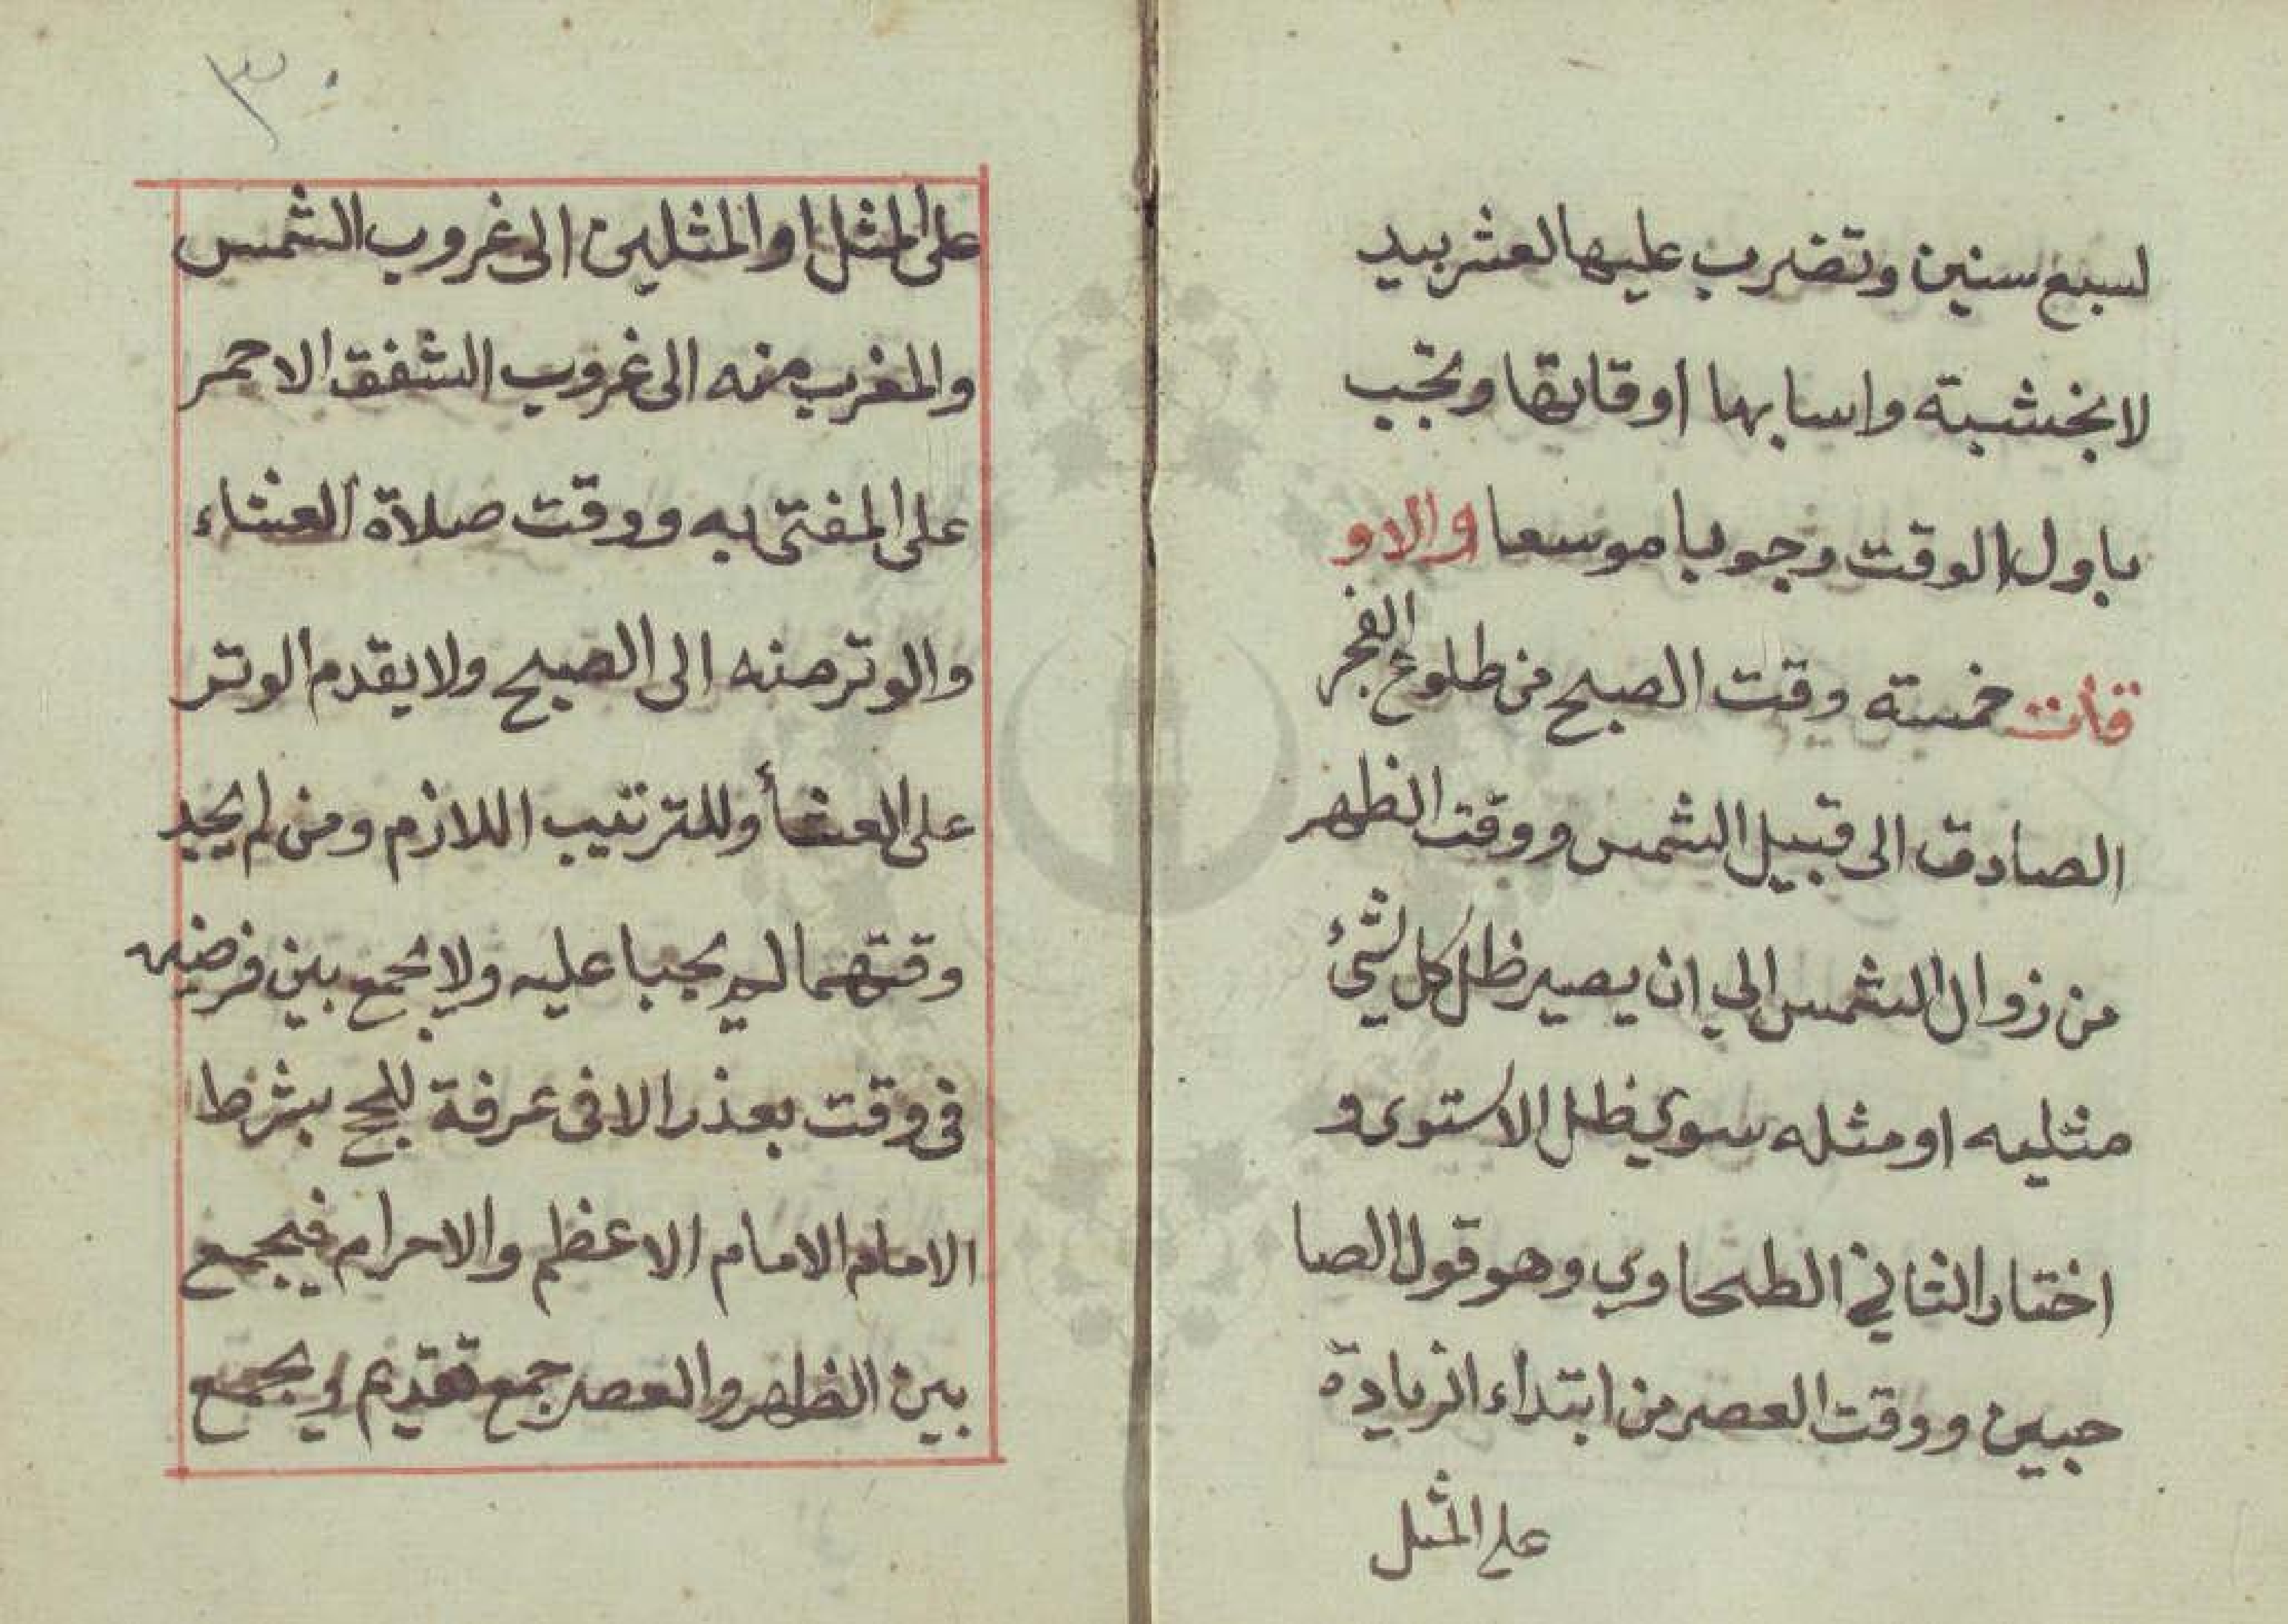 لسبع سنين وتضرب عليها لعشر بيد
لا بخشبته واسبابها اوقاتها وتجب
باول الوقت وجوبا موسعا والاو
قات خمسته وقت الصبح من طلوع الفجر
الصادق الى قبيل الشمس ووقت الظهر
من زوال الشمس الي ان يصير ظل كل شئ
مثليه او مثله سوي ظل الاستوى و
اختار الثاني الطحاوي وهو قول الصا
حبين ووقت العصر من ابتداء الزيادة
على المثل
٣٠
على المثل او المثلين الى غروب الشمس
والمغرب منه الى غروب الشفق الاحمر
على المفتى به ووقت صلاة العشاء
والوتر منه الى الصبح ولا يقدم الوتر
على العشأ وللترتيب اللازم ومن لم يجد
وقتهما لم يجبا عليه ولا يجمع بين فرضين
فى وقت بعذر الا فى عرفة للحج بشرط
الامام الامام الاعظم والاحرام فيجمع
بين الظهر والعصر جمع تقديم ويجمع